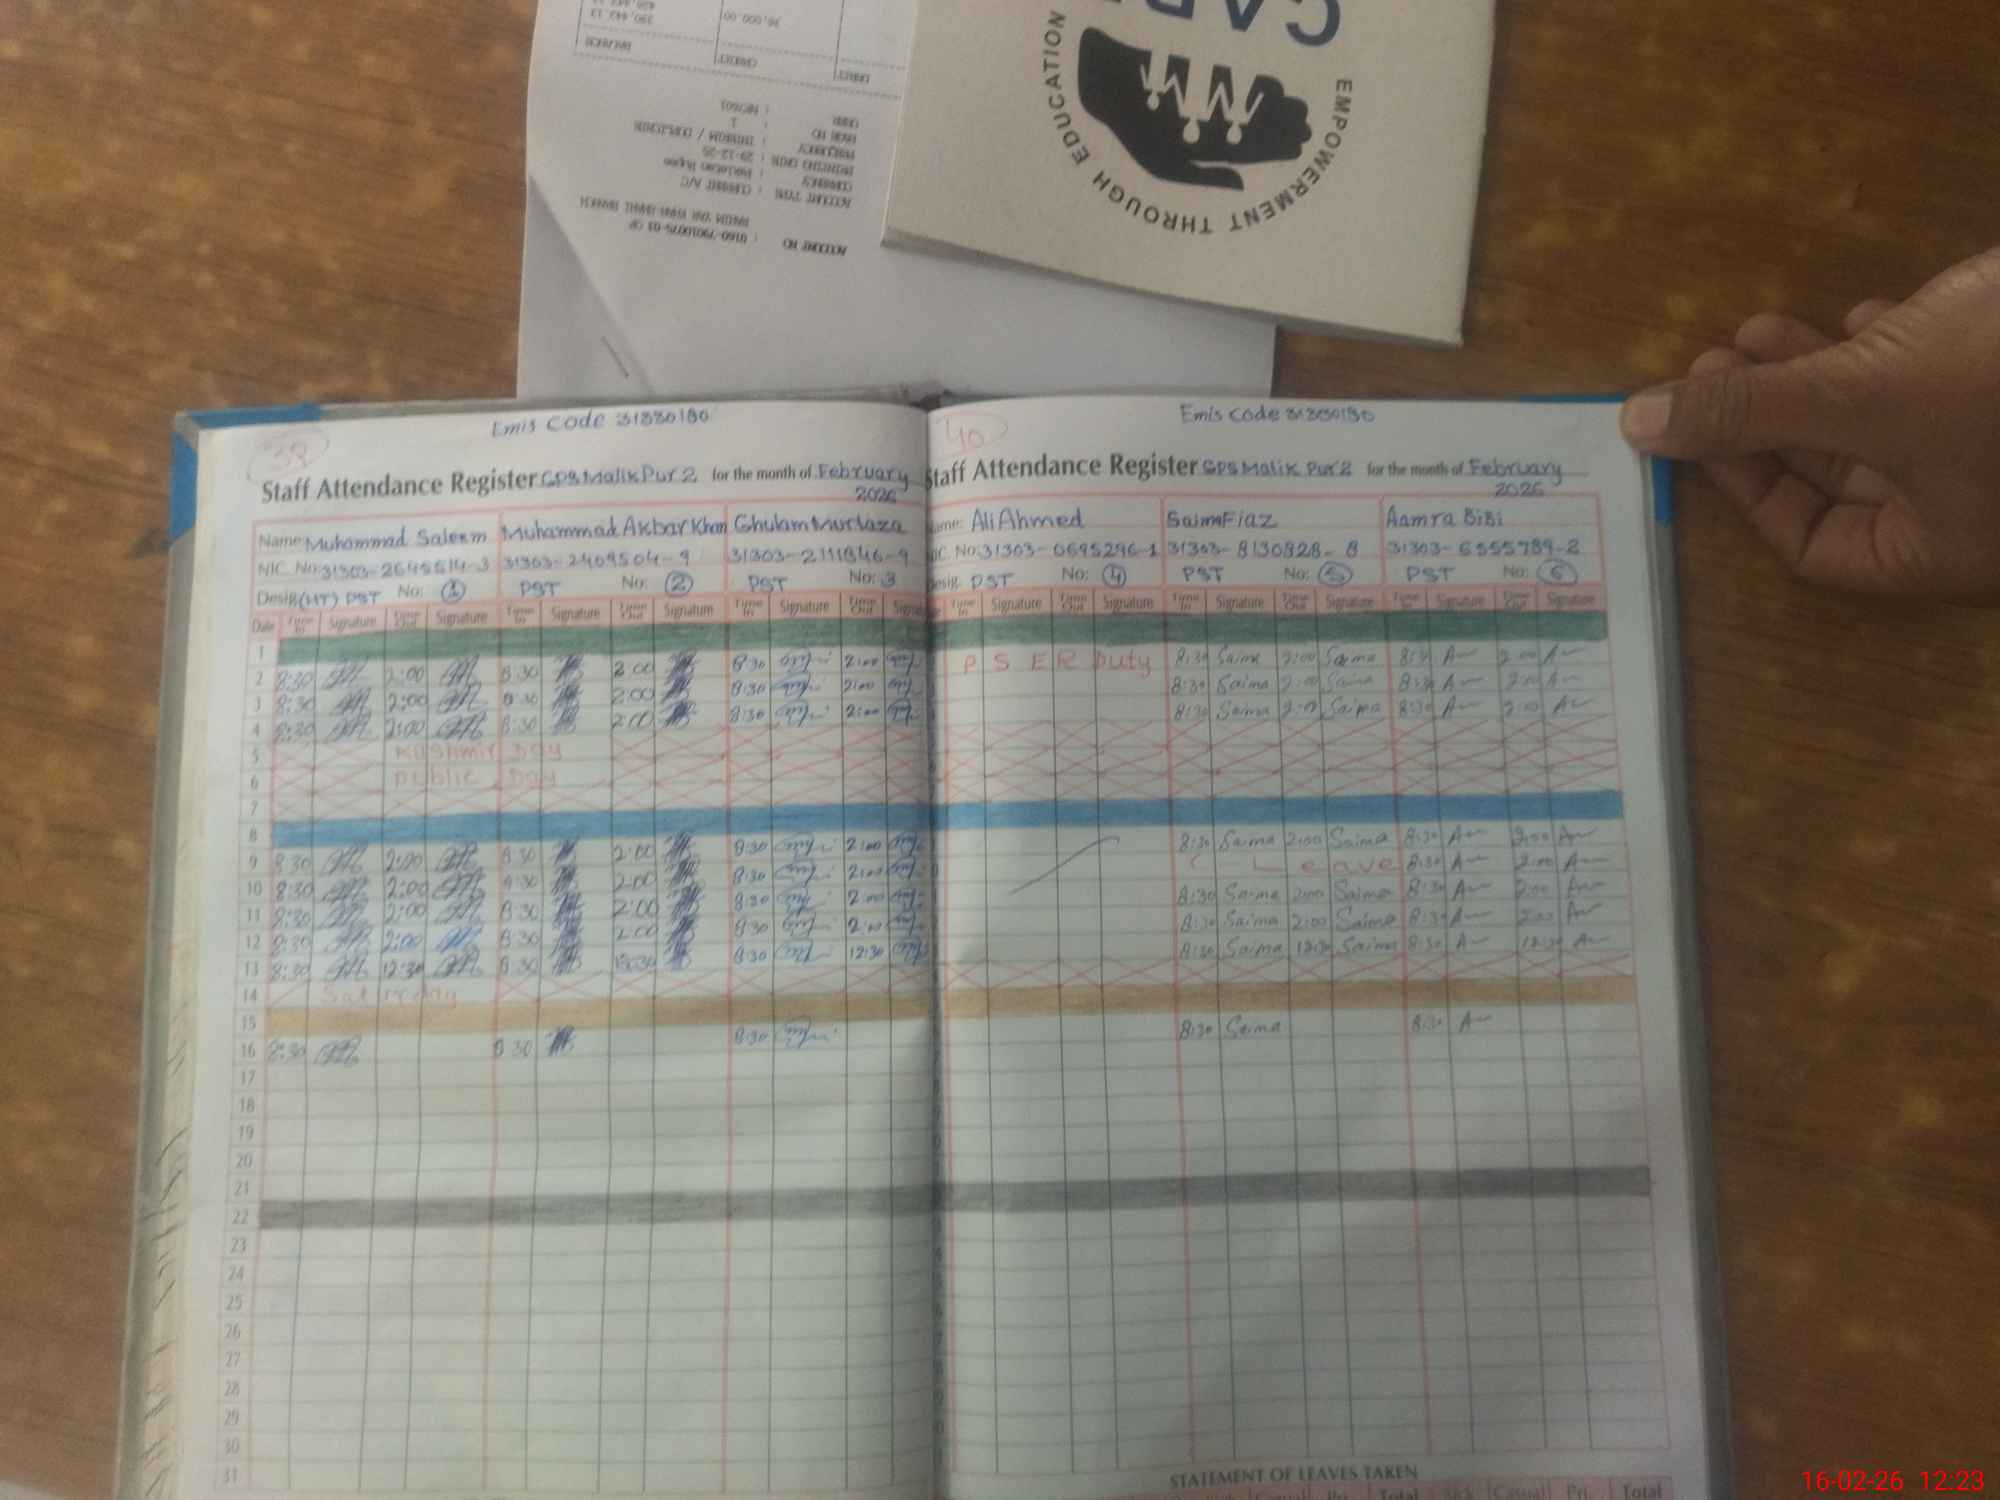 CARE
EMPOWERMENT THROUGH EDUCATION
ACCOUNT NO : 0160-79010075-03 OF
ACCOUNT TYPE : CURRENT A/C
CURRENCY : Pakistan Rupee
PRINTING DATE : 29-12-25
FREQUENCY : INTERIM / DUPLICATE
PAGE NO : 1
DEBIT CREDIT BALANCE
Emis Code 31330180
38
Staff Attendance Register GPS Malik Pur 2 for the month of February
2026
Name: Muhammad Saleem Muhammad Akbar Khan Ghulam Murtaza
NIC. No: 31303-2645614-3 31303-2409504-9 31303-2111846-9
Desig: (HT) PST No: 1 PST No: 2 PST No: 3
Date Time In Signature Time Out Signature Time In Signature Time Out Signature Time In Signature Time Out Signature
1
2 8:30 2:00 8:30 2:00 8:30 2:00
3 8:30 2:00 8:30 2:00 8:30 2:00
4 8:30 2:00 8:30 2:00 8:30 2:00
5 Kashmir Day
6 public Day
7
8
9 8:30 2:00 8:30 2:00 8:30 2:00
10 8:30 2:00 8:30 2:00 8:30 2:00
11 8:30 2:00 8:30 2:00 8:30 2:00
12 8:30 2:00 8:30 2:00 8:30 2:00
13 8:30 12:30 8:30 12:30 8:30 12:30
14 Saturday
15
16 8:30 8:30 8:30
17
18
19
20
21
22
23
24
25
26
27
28
29
30
31
Emis Code 31330180
40
Staff Attendance Register GPS Malik Pur 2 for the month of February
2026
Name: Ali Ahmed Saima Fiaz Aamra BiBi
NIC. No: 31303-0695296-1 31303-8130828-8 31303-6555789-2
Desig. PST No: 4 PST No: 5 PST No: 6
Time In Signature Time Out Signature Time In Signature Time Out Signature Time In Signature Time Out Signature
PSER Duty 8:30 Saima 2:00 Saima 8:30 2:00
8:30 Saima 2:00 Saima 8:30 2:00
8:30 Saima 2:00 Saima 8:30 2:00
8:30 Saima 2:00 Saima 8:30 2:00
Leave 8:30 2:00
8:30 Saima 2:00 Saima 8:30 2:00
8:30 Saima 2:00 Saima 8:30 2:00
8:30 Saima 12:30 Saima 8:30 12:30
8:30 Saima 8:30
STATEMENT OF LEAVES TAKEN
Casual Pri. Total Sick Casual Pri. Total
16-02-26 12:23